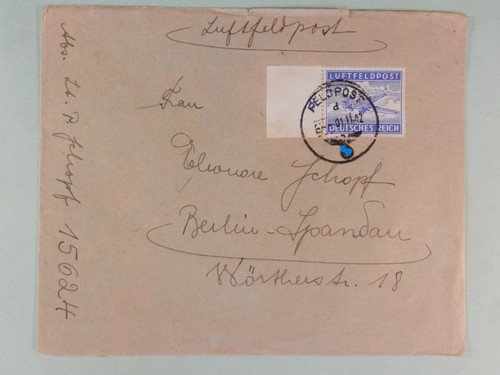 Luftfeldpost
LUFTFELDPOST
DEUTSCHES REICH
FELDPOST
d
Frau
Eleonore Schopf
Berlin-Spandau
Wörtherstr. 18
Abs. Lt. R. Schopf 15624